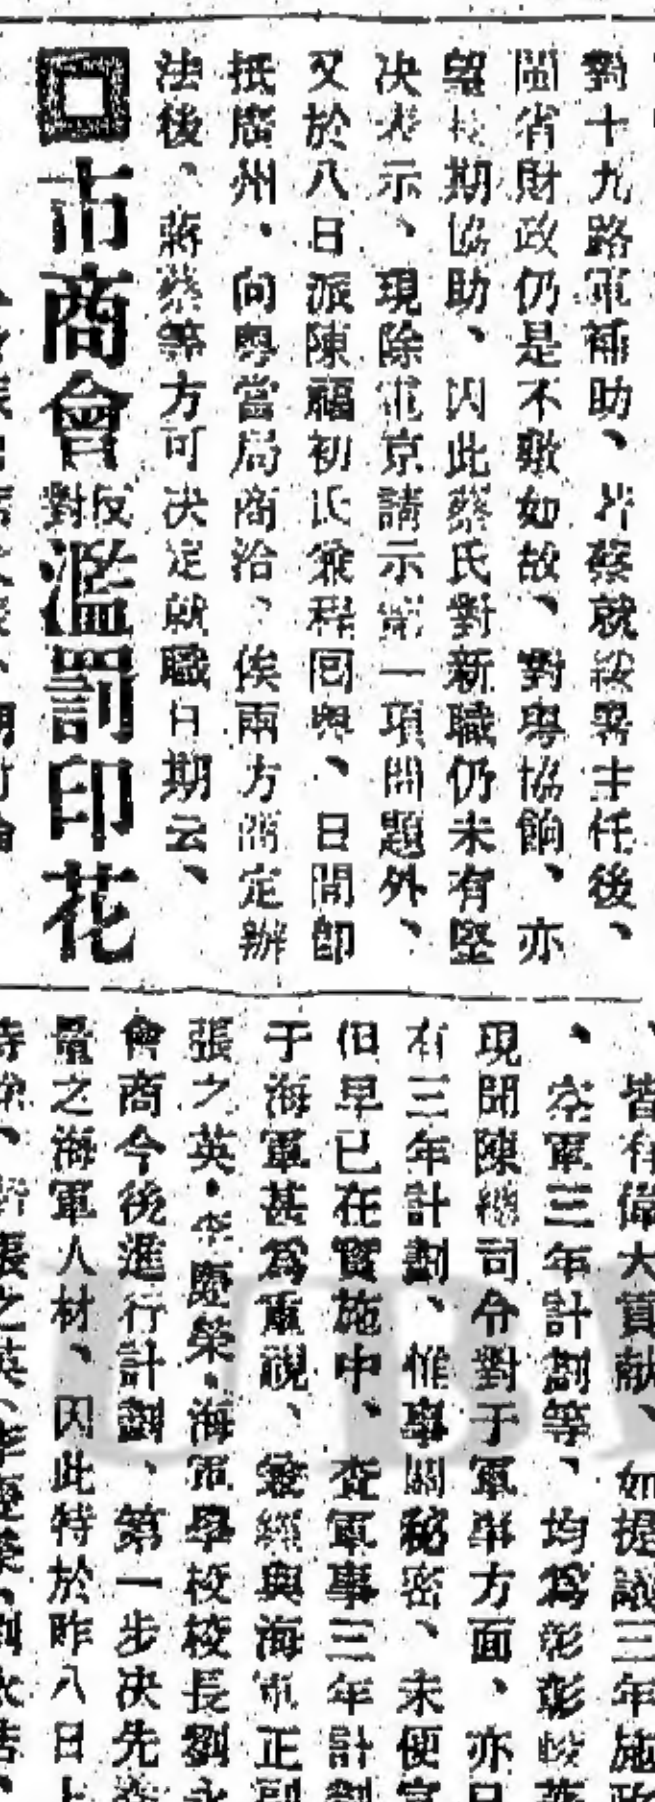 對十九路軍補助、蔡就綏署主任後、
閩省財政仍是不敷如故、對粵協餉、亦
望長期協助、因此蔡氏對新職仍未有堅
决表示、現除電京請示第一項問題外、
又於八日派陳福初氏兼程囘粤、日間卽
抵廣州、向粵當局商洽、俟兩方商定辦
法後、蔣蔡等方可决定就職日期云、
市商會反對濫罰印花
、皆有偉大貢献、如提議三年施政
、空軍三年計劃等、均爲彰彰
現聞陳總司令對于軍事方面、亦已
有三年計劃、惟事關秘密、未便宣
但早已在實施中、查軍事三年計劃
于海軍甚爲重視、兼經與海軍正副
張之英、李慶榮、海軍學校校長劉永
會商今後進行計劃、第一步决先
量之海軍人材、因此特於昨八日上
張之英、李慶榮、劉永